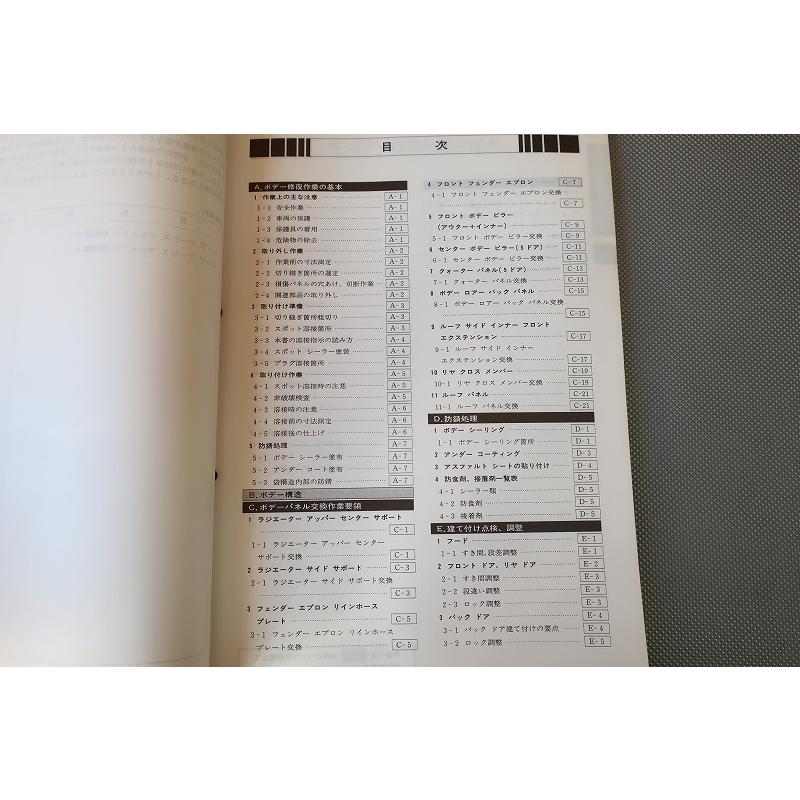 目 次
A. ボデー修復作業の基本
1 作業上の主な注意 A-1
1-1 安全作業 A-1
1-2 車両の保護 A-1
1-3 保護具の着用 A-1
1-4 危険物の除去 A-1
2 取り外し作業 A-2
2-1 作業前の寸法測定 A-2
2-2 切り継ぎ箇所の選定 A-2
2-3 損傷パネルの穴あけ、切断作業 A-2
2-4 関連部品の取り外し A-2
3 取り付け準備 A-3
3-1 切り継ぎ箇所粗切り A-3
3-2 スポット溶接箇所 A-3
3-3 本書の溶接指示の読み方 A-4
3-4 スポット シーラー塗装 A-4
3-5 プラグ溶接箇所 A-4
4 取り付け作業 A-5
4-1 スポット溶接時の注意 A-5
4-2 非破壊検査 A-5
4-3 溶接時の注意 A-6
4-4 溶接前の寸法測定 A-6
4-5 溶接後の仕上げ A-6
5 防錆処理 A-7
5-1 ボデー シーラー塗布 A-7
5-2 アンダー コート塗布 A-7
5-3 袋構造内部の防錆 A-7
B. ボデー構造
C. ボデーパネル交換作業要領
1 ラジエーター アッパー センター サポート
C-1
1-1 ラジエーター アッパー センター
サポート交換 C-1
2 ラジエーター サイド サポート C-3
2-1 ラジエーター サイド サポート交換
C-3
3 フェンダー エプロン リインホース
プレート C-5
3-1 フェンダー エプロン リインホース
プレート交換 C-5
4 フロント フェンダー エプロン C-7
4-1 フロント フェンダー エプロン交換
C-7
5 フロント ボデー ピラー
(アウター+インナー) C-9
5-1 フロント ボデー ピラー交換 C-9
6 センター ボデー ピラー(5ドア) C-11
6-1 センター ボデー ピラー交換 C-11
7 クォーター パネル(5ドア) C-13
7-1 クォーター パネル交換 C-13
8 ボデー ロアー バック パネル C-15
8-1 ボデー ロアー バック パネル交換
C-15
9 ルーフ サイド インナー フロント
エクステンション C-17
9-1 ルーフ サイド インナー
エクステンション交換 C-17
10 リヤ クロス メンバー C-19
10-1 リヤ クロス メンバー交換 C-19
11 ルーフ パネル C-21
11-1 ルーフ パネル交換 C-21
D. 防錆処理
1 ボデー シーリング D-1
1-1 ボデー シーリング箇所 D-1
2 アンダー コーティング D-3
3 アスファルト シートの貼り付け D-4
4 防食剤、接着剤一覧表 D-5
4-1 シーラー類 D-5
4-2 防食剤 D-5
4-3 接着剤 D-5
E. 建て付け点検、調整
1 フード E-1
1-1 すき間、段差調整 E-1
2 フロント ドア、リヤ ドア E-2
2-1 すき間調整 E-3
2-2 段違い調整 E-3
2-3 ロック調整 E-3
3 バック ドア E-4
3-1 バック ドア建て付けの要点 E-4
3-2 ロック調整 E-5